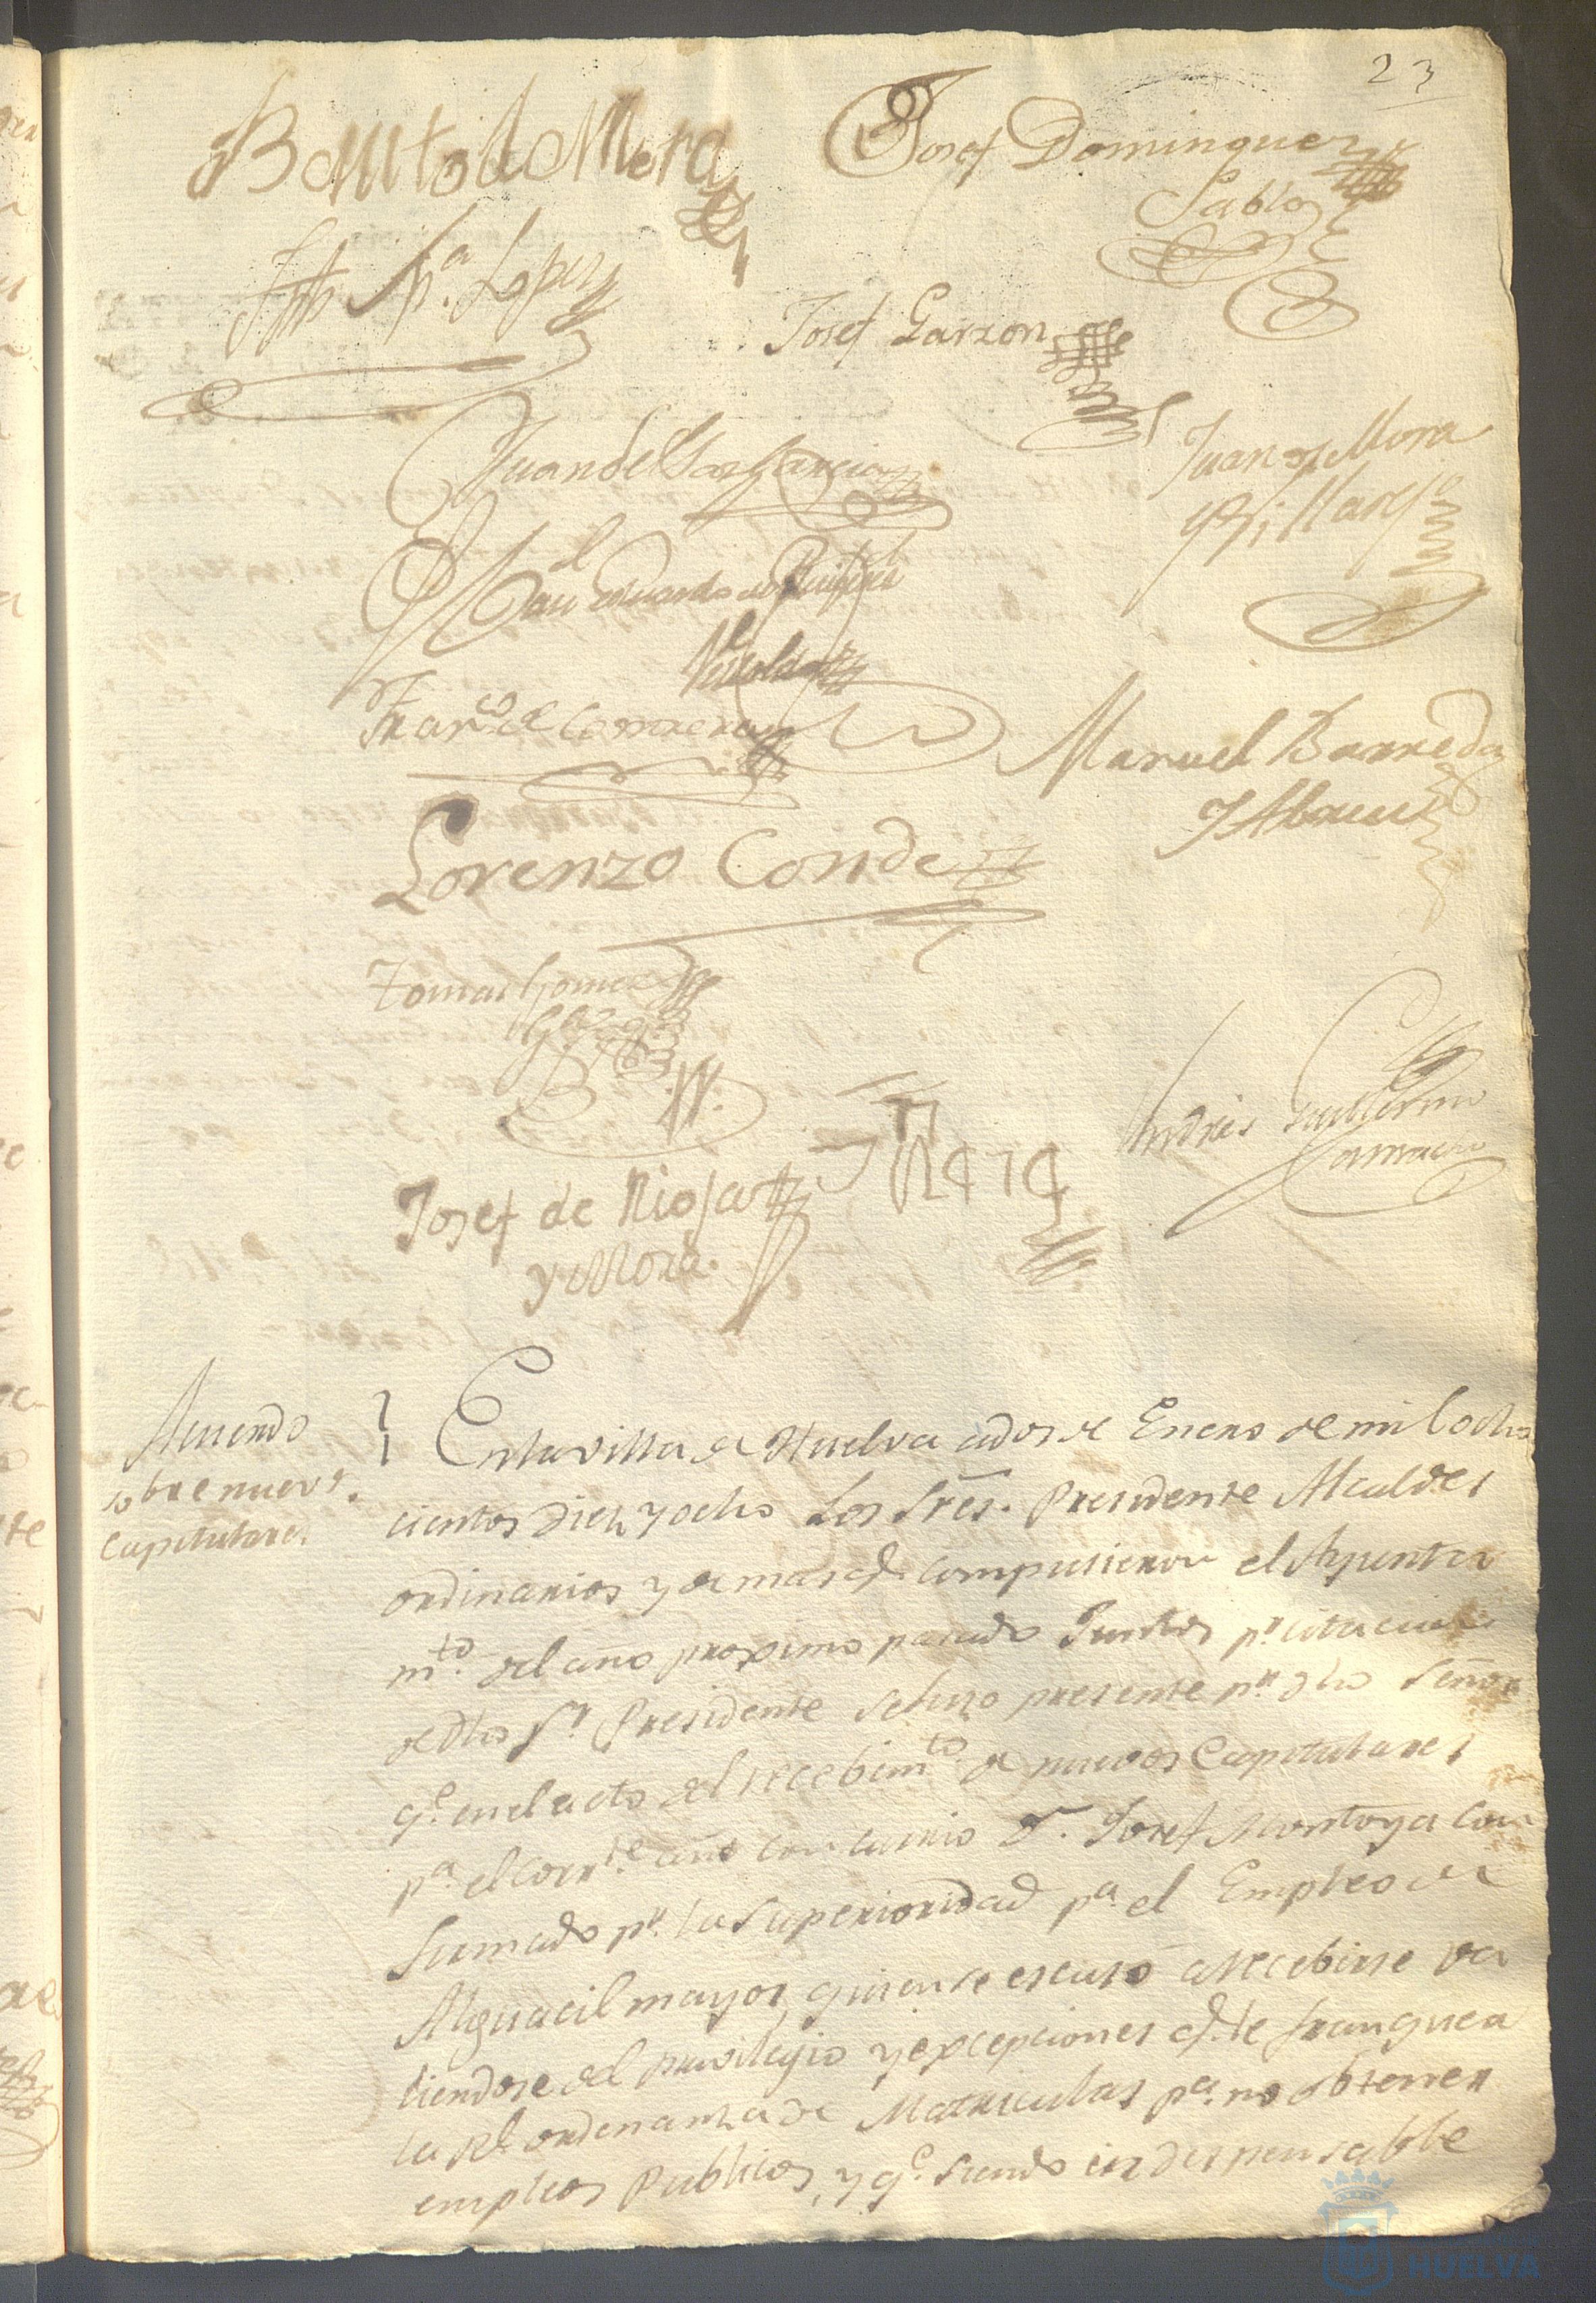 23
Benito de Mora
Josef Dominguez
Pablo
López
Josef Garzon
Juan de
Garcia
Juan de Mora
y Villaseñor
Eduardo
Franco. de Contreras
Manuel Barreda
y Abreu
Lorenzo Conde
Tomas Gomez
Andres Guillermo
Camacho
Josef de Rioja
y Mora.
Acuerdo
sobre nuevos
Capitulares.
En la villa de Huelva a dos de Enero de mil ocho
cientos diez y ocho Los Sres. Presidente Alcaldes
ordinarios y demas q. compusieron el Ayunta
mto. del año proximo pasado Juntos pr. citacion
de dho Sr. Presidente se hizo presente pr. dho Señor
qe. en el acto del recebimto. de nuevos Capitulares
pa. el corrte. año concurrio Dn. Josef Montoya con
firmado pr. la Superioridad pa. el Empleo de
Alguacil mayor, quien se escusó a recebirse va
liendose del privilegio y excepciones q. le franquea
la Rl. ordenanza de Matriculas pa. no obtener
empleos Publicos, y qe. siendo indispensable
HUELVA